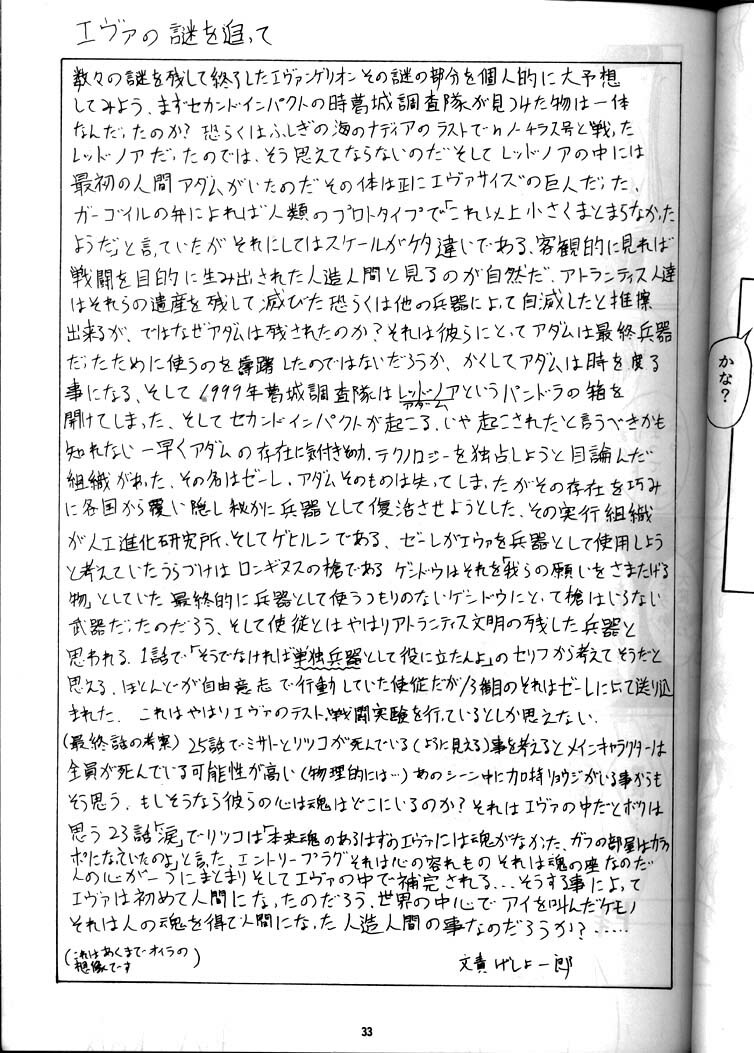 エヴァの謎を追って
数々の謎を残して終了したエヴァンゲリオンその謎の部分を個人的に大予想
してみよう、まずセカンドインパクトの時葛城調査隊が見つけた物は一体
なんだったのか?恐らくはふしぎの海のナディアのラストでnノーチラス号と戦った
レッドノアだったのでは、そう思えてならないのだそしてレッドノアの中には
最初の人間アダムがいたのだその体は正にエヴァサイズの巨人だった、
ガーゴイルの弁によれば人類のプロトタイプで「これ以上小さくまとまらなかった
ようだ」と言っていたがそれにしてはスケールがケタ違いである、客観的に見れば
戦闘を目的に生み出された人造人間と見るのが自然だ、アトランティス人達
はそれらの遺産を残して滅びた恐らくは他の兵器によって自滅したと推察
出来るが、ではなぜアダムは残されたのか?それは彼らにとってアダムは最終兵器
だったために使うのを躊躇したのではないだろうか、かくしてアダムは時を度る
事になる、そして1999年葛城調査隊はレッドノアというパンドラの箱を
アダム
開けてしまった、そしてセカンドインパクトが起こる、いや起こされたと言うべきかも
知れない一早くアダムの存在に気付き、テクノロジーを独占しようと目論んだ
組織があった、その名はゼーレ、アダムそのものは失ってしまったがその存在を巧みに
に各国から覆い隠し秘かに兵器として復活させようとした、その実行組織
が人工進化研究所、そしてゲヒルンである、ゼーレがエヴァを兵器として使用しよう
と考えていたうらづけはロンギヌスの槍であるゲンドウはそれを「我らの願いをさまたげる
物」としていた最終的に兵器として使うつもりのないゲンドウにとって槍はいらない
武器だったのだろう、そして使徒とはやはりアトランティス文明の残した兵器と
思われる、1話で「そうでなければ単独兵器として役に立たんよ」のセリフから考えてそうだと
思える、ほとんどが自由意志で行動していた使徒だが13番目のそれはゼーレによって送り込
まれた、これはやはりエヴァのテスト、戦闘実験を行っているとしか思えない、
(最終話の考察)25話でミサトとリツコが死んでいる(ように見える)事を考えるとメインキャラクターは
全員が死んでいる可能性が高い(物理的には…)あのシーン中に加持リョウジがいる事からも
そう思う、もしそうなら彼らの心は魂はどこにいるのか?それはエヴァの中だとボクは
思う23話「涙」でリツコは「本来魂のあるはずのエヴァには魂がなかった、ガフの部屋はカラッ
ポになっていたのよ」と言った、エントリープラグそれは心の容れものそれは魂の座なのだ
人の心が一つにまとまりそしてエヴァの中で補完される…そうする事によって
エヴァは初めて人間になったのだろう、世界の中心でアイを叫んだケモノ
それは人の魂を得て人間になった人造人間の事なのだろうか?……
(これはあくまでオイラの
想像です)
文責げしょ一郎
かな?
33